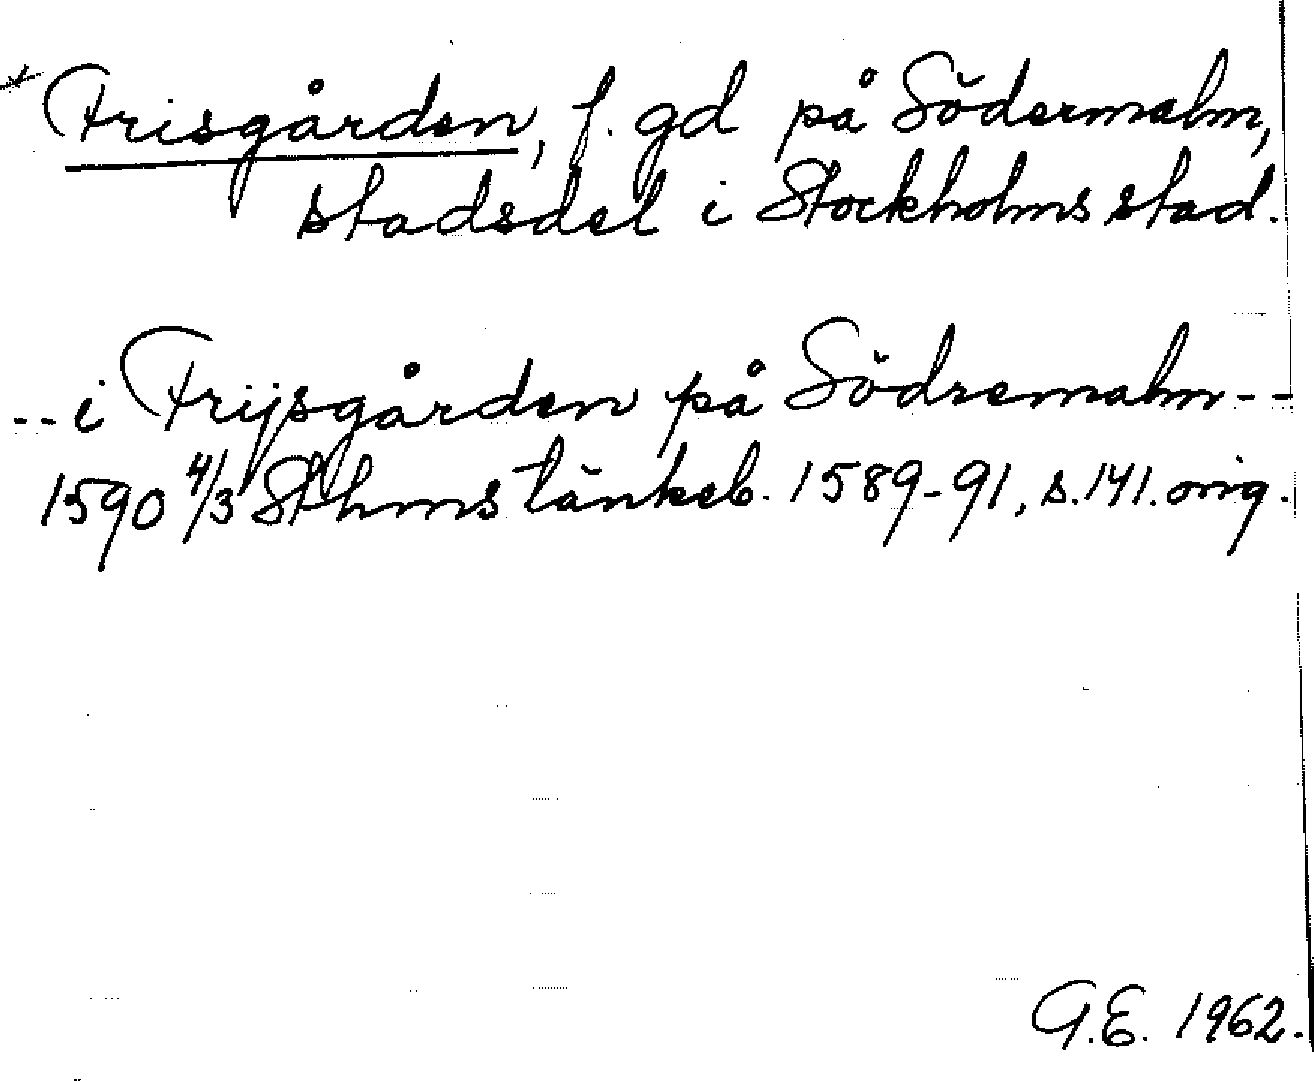 * Frisgården, f. gd på Södermalm,
stadsdel i Stockholms stad.
-- i Frijsgården på Södremalm --
1590 4/3 Sthms tänkeb. 1589-91, s. 141. orig.
G.E. 1962.